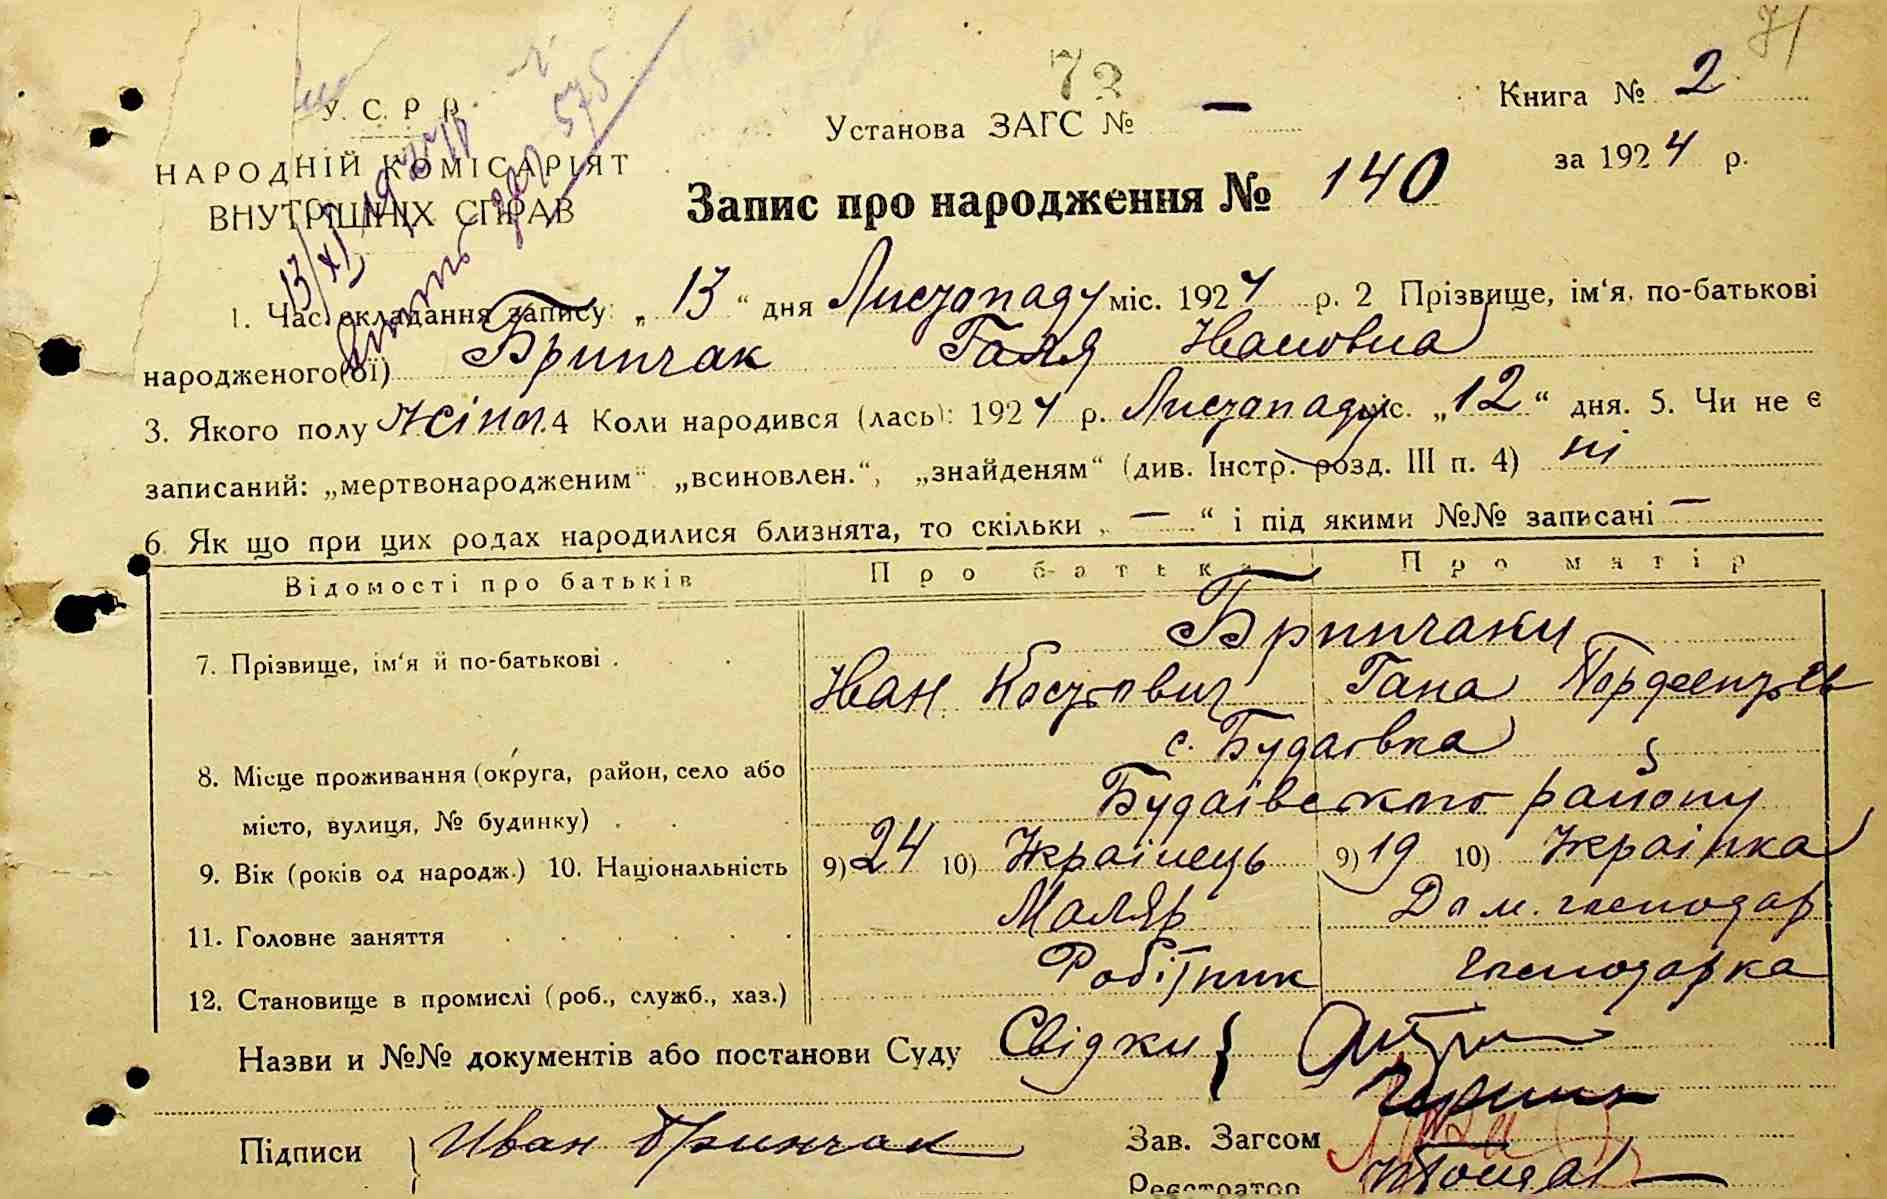 71
73
У. С. Р. Р.
Установа ЗАГС № —
Книга № 2
НАРОДНІЙ КОМІСАРІЯТ
ВНУТРІШНІХ СПРАВ
Запис про народження № 140
за 1924 р.
13/XI
575
1. Час складання запису: „13“ дня Листопаду міс. 1924 р. 2 Прізвище, ім‘я, по-батькові
народженого(ої) Бринчак Галя Івановна
3. Якого полу жіноч. 4 Коли народився (лась): 1924 р. Листопаду міс. „12“ дня. 5. Чи не є
записаний: „мертвонародженим“ „всиновлен.“, „знайденям“ (див. Інстр. розд. III п. 4) ні
6. Як що при цих родах народилися близнята, то скільки „—“ і під якими №№ записані —
Відомості про батьків Про батька Про матір
Бринчаки
7. Прізвище, ім‘я й по-батькові . Іван Костович Гана
с. Будаєвка
8. Місце проживання (округа, район, село або
місто, вулиця, № будинку) . Будаівського району
9. Вік (років од народж.) 10. Національність 9) 24 10) Украінець 9) 19 10) Украінка
11. Головне заняття Маляр Дом. господар
12. Становище в промислі (роб., служб., хаз.) Робітник господарка
Назви и №№ документів або постанови Суду Свідки }
Підписи } Иван Бринчак Зав. Загсом
Реєстратор